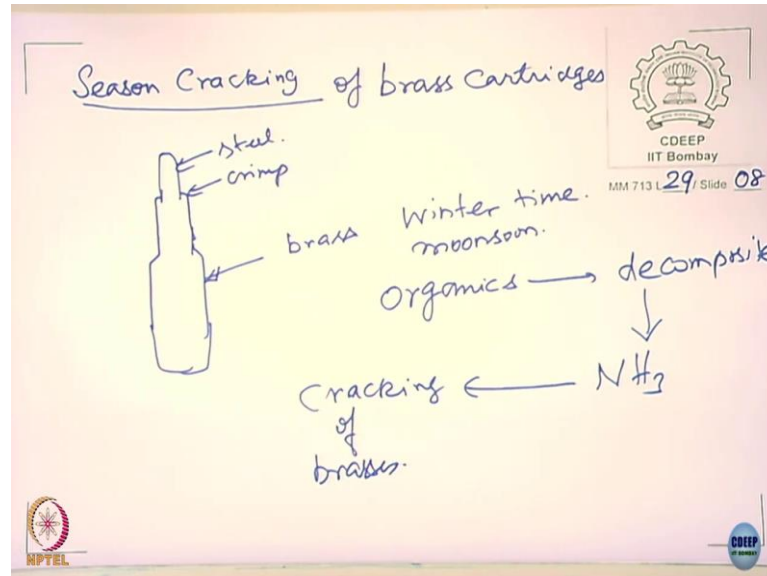 Season Cracking of brass Cartridges
CDEEP
IIT Bombay
MM 713 L 29 / Slide 08
steel.
crimp
brass
Winter time.
moonsoon.
Organics → decomposite
↓
Cracking ← NH3
of
brasses.
NPTEL
CDEEP
IIT BOMBAY